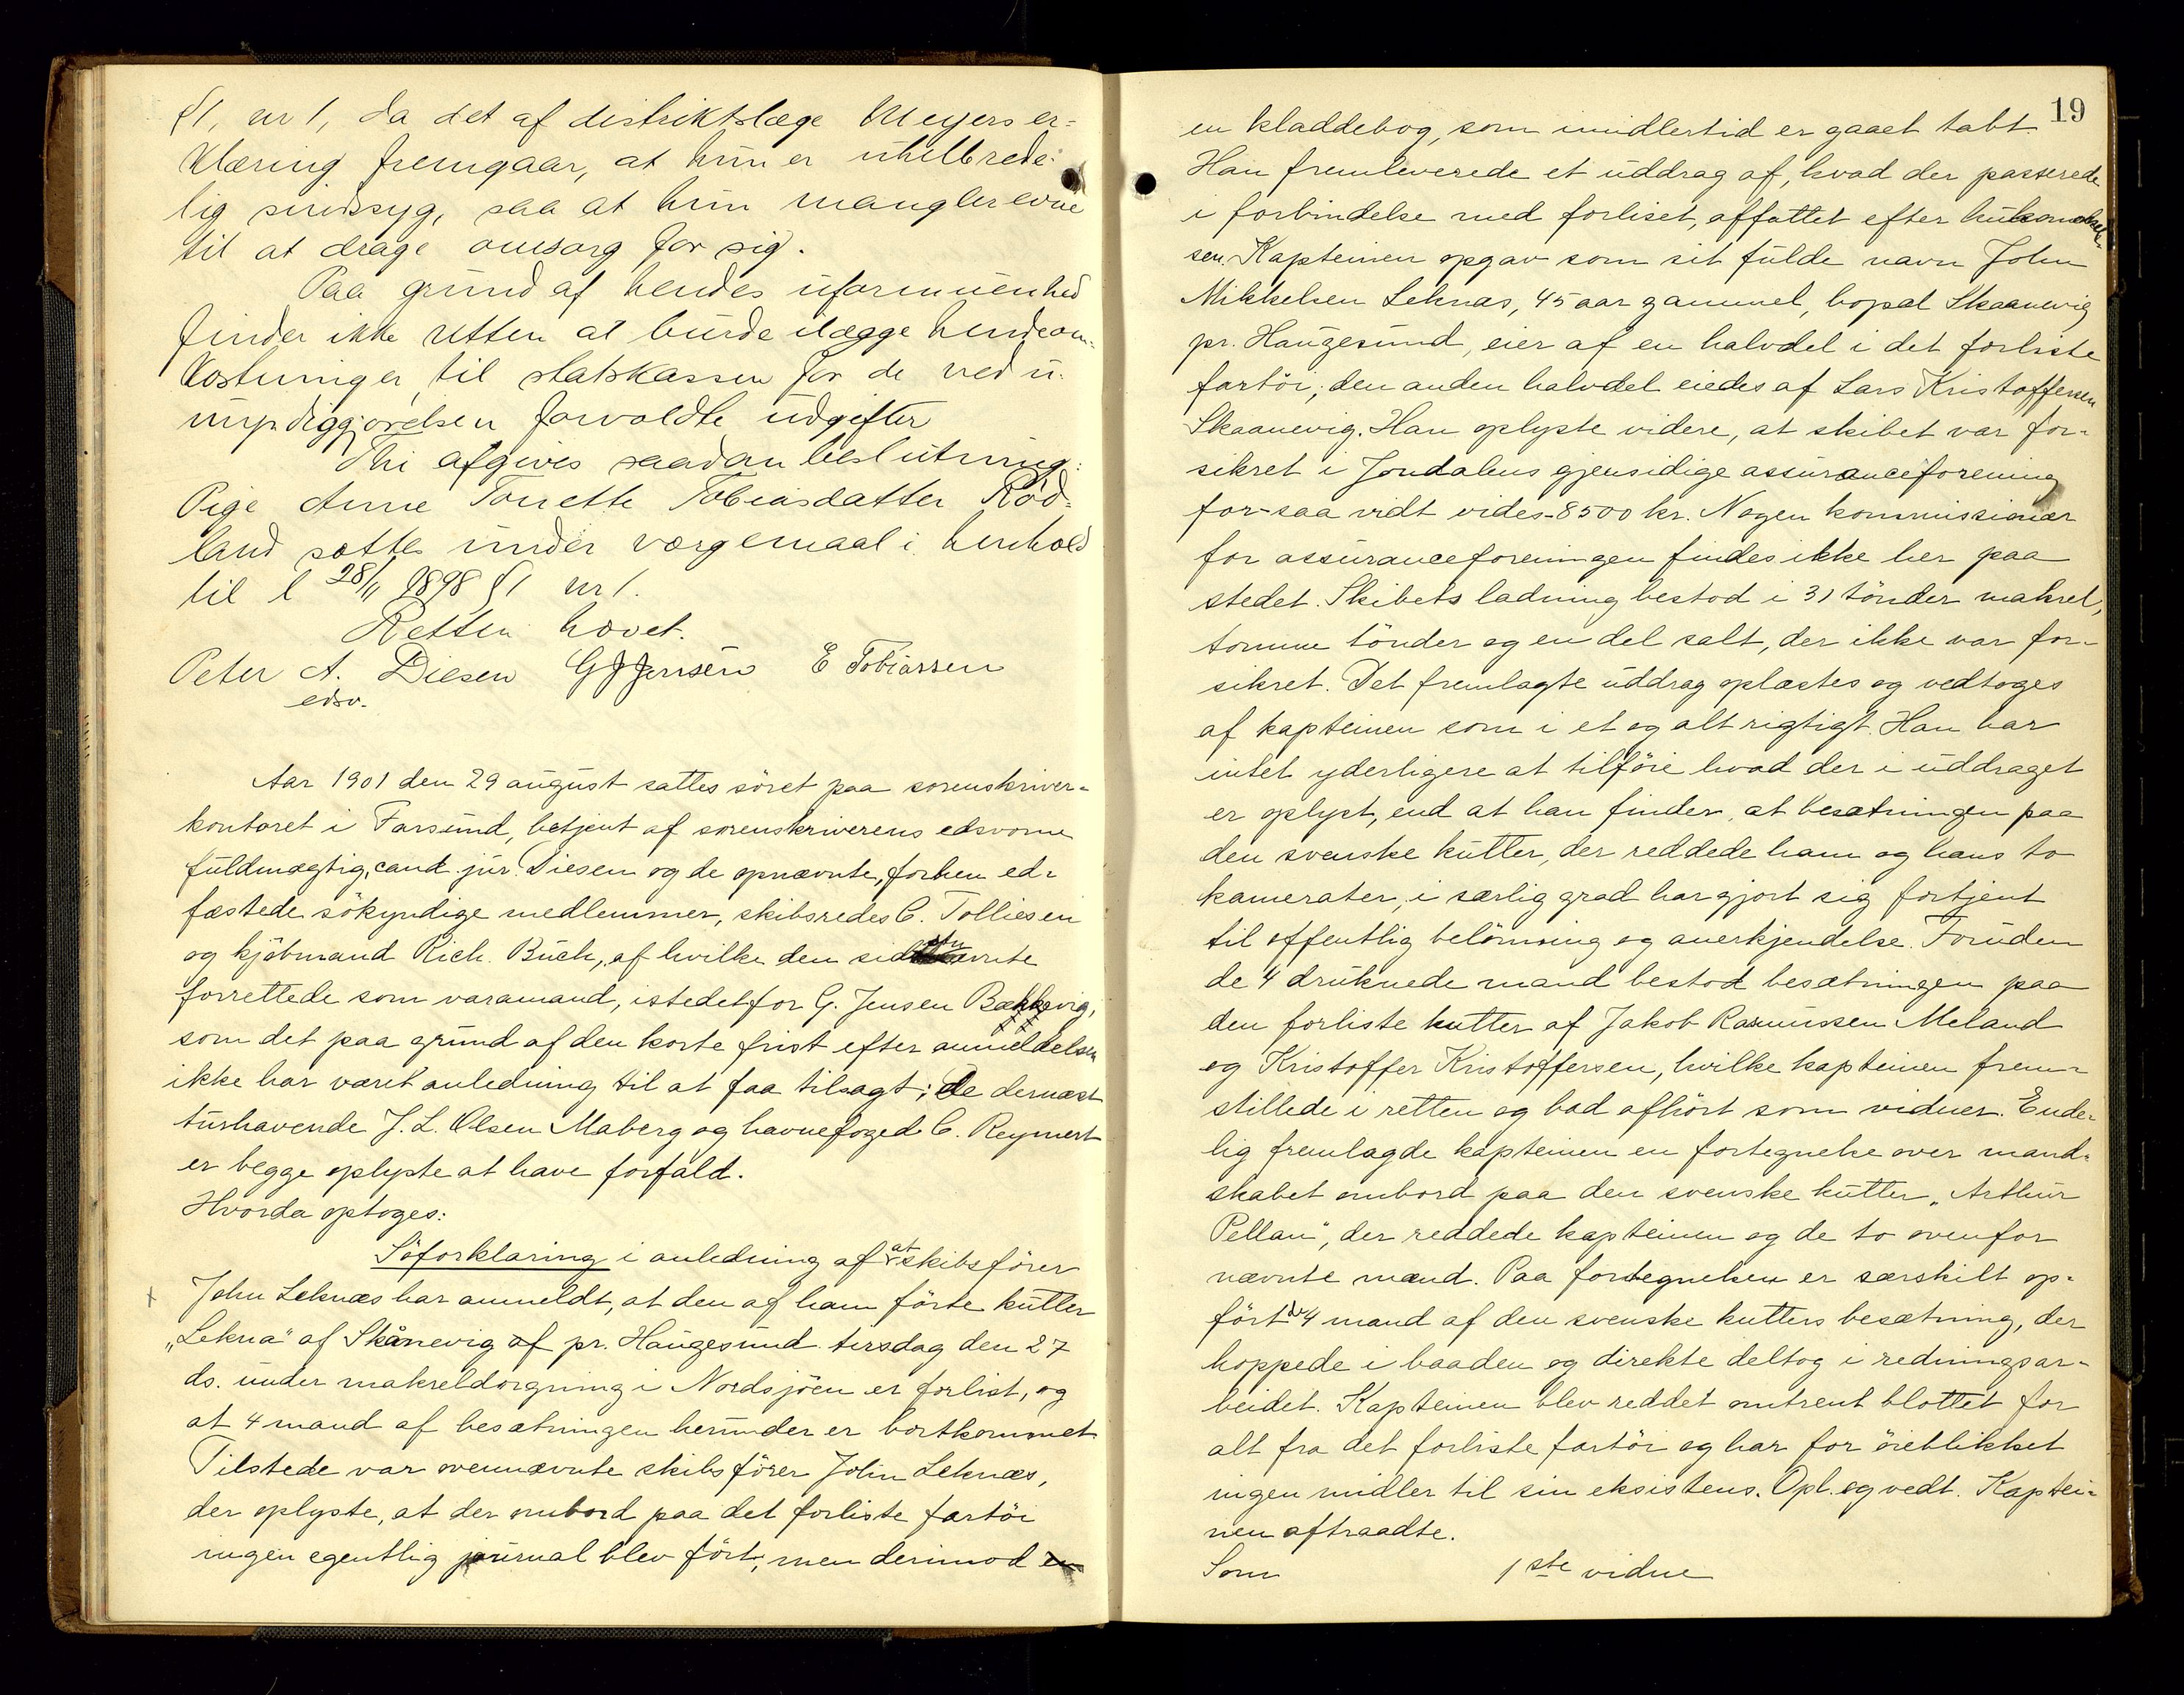 §1, nr 1, da det af distriktslæge Meyers er-
klæring fremgaar, at hun er uhelbrede-
lig sindssyg, saa at hun mangler evne
til at drage omsorg for sig.
Paa grund af hendes uformuenhed
finder ikke retten at burde ilægge hende om-
kostninger til statskassen for de ved u-
myndiggjørelsen forvoldte udgifter
Thi afgives saadan beslutning:
Pige Anne Tonette Tobiasdatter Rød-
land sættes under værgemaal i henhold
til l 28/11 1898 §1 nr 1.
Retten hævet.
Peter A. Diesen GJJensen E Tobiassen
edsv.
Aar 1901 den 29 august sattes söret paa sorenskriver-
kontoret i Farsund, betjent af sorenskriverens edsvorne
fuldmægtig, cand. jur. Diesen og de opnævnte, forhen ed-
fæstede sökyndige medlemmer, skibsreder C. Tolliesen
og kjöbmand Rich. Buch, af hvilke den sidstnævnte
forrettede som varamand, istedetfor G. Jensen Bækkevig,
som det paa grund af den korte frist efter anmeldelsen
ikke har været anledning til at faa tilsagt; de dernæst
turhavende J. L. Olsen Maberg og havnefoged C. Reymert
er begge oplyste at have forfald.
Hvorda optoges:
Söforklaring i anledning af at skibsförer
John Leknæs har anmeldt, at den af ham förte kutter
„Lekna" af Skånevig af pr. Haugesund tirsdag den 27
ds. under makreldorgning i Nordsjöen er forlist, og
at 4 mand af besætningen herunder er bortkommet
Tilstede var ovennævnte skibsförer John Leknæs,
der oplyste, at der ombord paa det forliste fartöi
ingen egentlig journal blev fört, men derimod en
19
en kladdebog, som imidlertid er gaaet tabt
Han fremleverede et uddrag af, hvad der passerede
i forbindelse med forliset, affattet efter hukommel-
sen. Kapteinen opgav som sit fulde navn John
Mikkelsen Leknæs, 45 aar gammel, bopæl Skaanevig
pr. Haugesund, eier af en halvdel i det forliste
fartöi; den anden halvdel eiedes af Lars Kristoffersen
Skaanevig. Han oplyste videre, at skibet var for-
sikret i Jondalens gjensidige assuranceforening
for - saa vidt vides - 8500 kr. Nogen kommissionær
for assuranceforeningen findes ikke her paa
stedet. Skibets ladning bestod i 31 tönder makrel,
tomme tönder og en del salt, der ikke var for-
sikret. Det fremlagte uddrag oplæstes og vedtoges
af kapteinen som i et og alt rigtigt. Han har
intet yderligere at tilföie hvad der i uddraget
er oplyst, end at han finder, at besætningen paa
den svenske kutter, der reddede ham og hans to
kamerater, i særlig grad har gjort sig fortjent
til offentlig belönning og anerkjendelse. Foruden
de 4 druknede mand bestod besætningen paa
den forliste kutter af Jakob Rasmussen Meland
og Kristoffer Kristoffersen, hvilke kapteinen frem-
stillede i retten og bad afhört som vidner. Ende-
lig fremlagde kapteinen en fortegnelse over mand-
skabet ombord paa den svenske kutter „Arthur
Pellan", der reddede kapteinen og de to ovenfor
nævnte mænd. Paa fortegnelsen er særskilt op-
fört de 4 mand af den svenske kutters besætning, der
hoppede i baaden og direkte deltog i redningsar-
beidet. Kapteinen blev reddet omtrent blottet for
alt fra det forliste fartöi og har for öieblikket
ingen midler til sin eksistens. Opl. og vedt. Kaptei-
nen aftraadte.
Som 1ste vidne